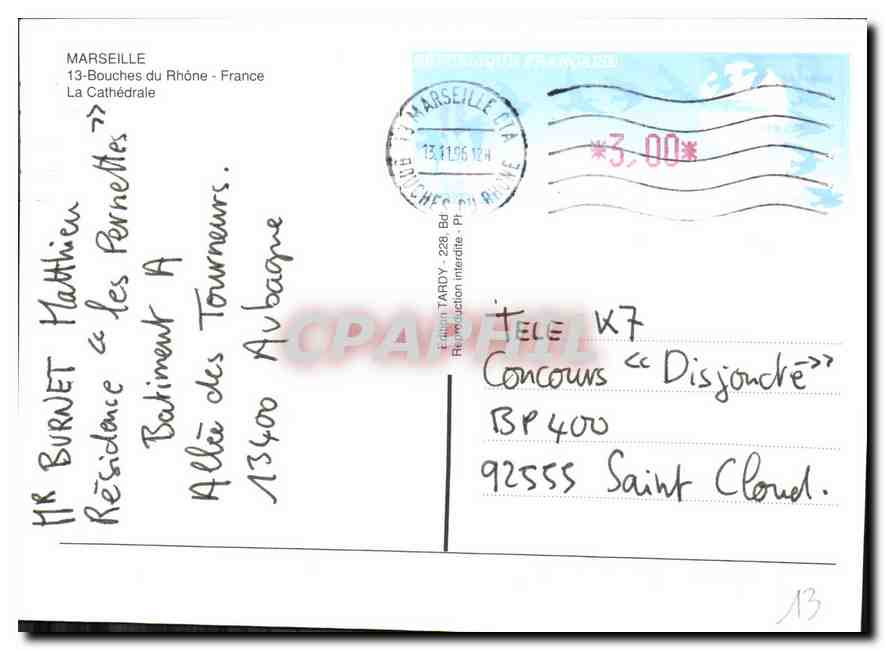 MARSEILLE
13-Bouches du Rhône - France
La Cathédrale
RÉPUBLIQUE FRANÇAISE
13 MARSEILLE CTA
13.11.96 12H
BOUCHES DU RHONE
*3,00*
MR BURNET Matthieu
Résidence « les Pernettes »
Batiment A
Allée des Tourneurs.
13400 Aubagne
Edition TARDY - 228, Bd
Reproduction interdite - Ph
CPAPHIL
TELE K7
Concours « Disjoncté »
BP 400
92555 Saint Cloud.
13